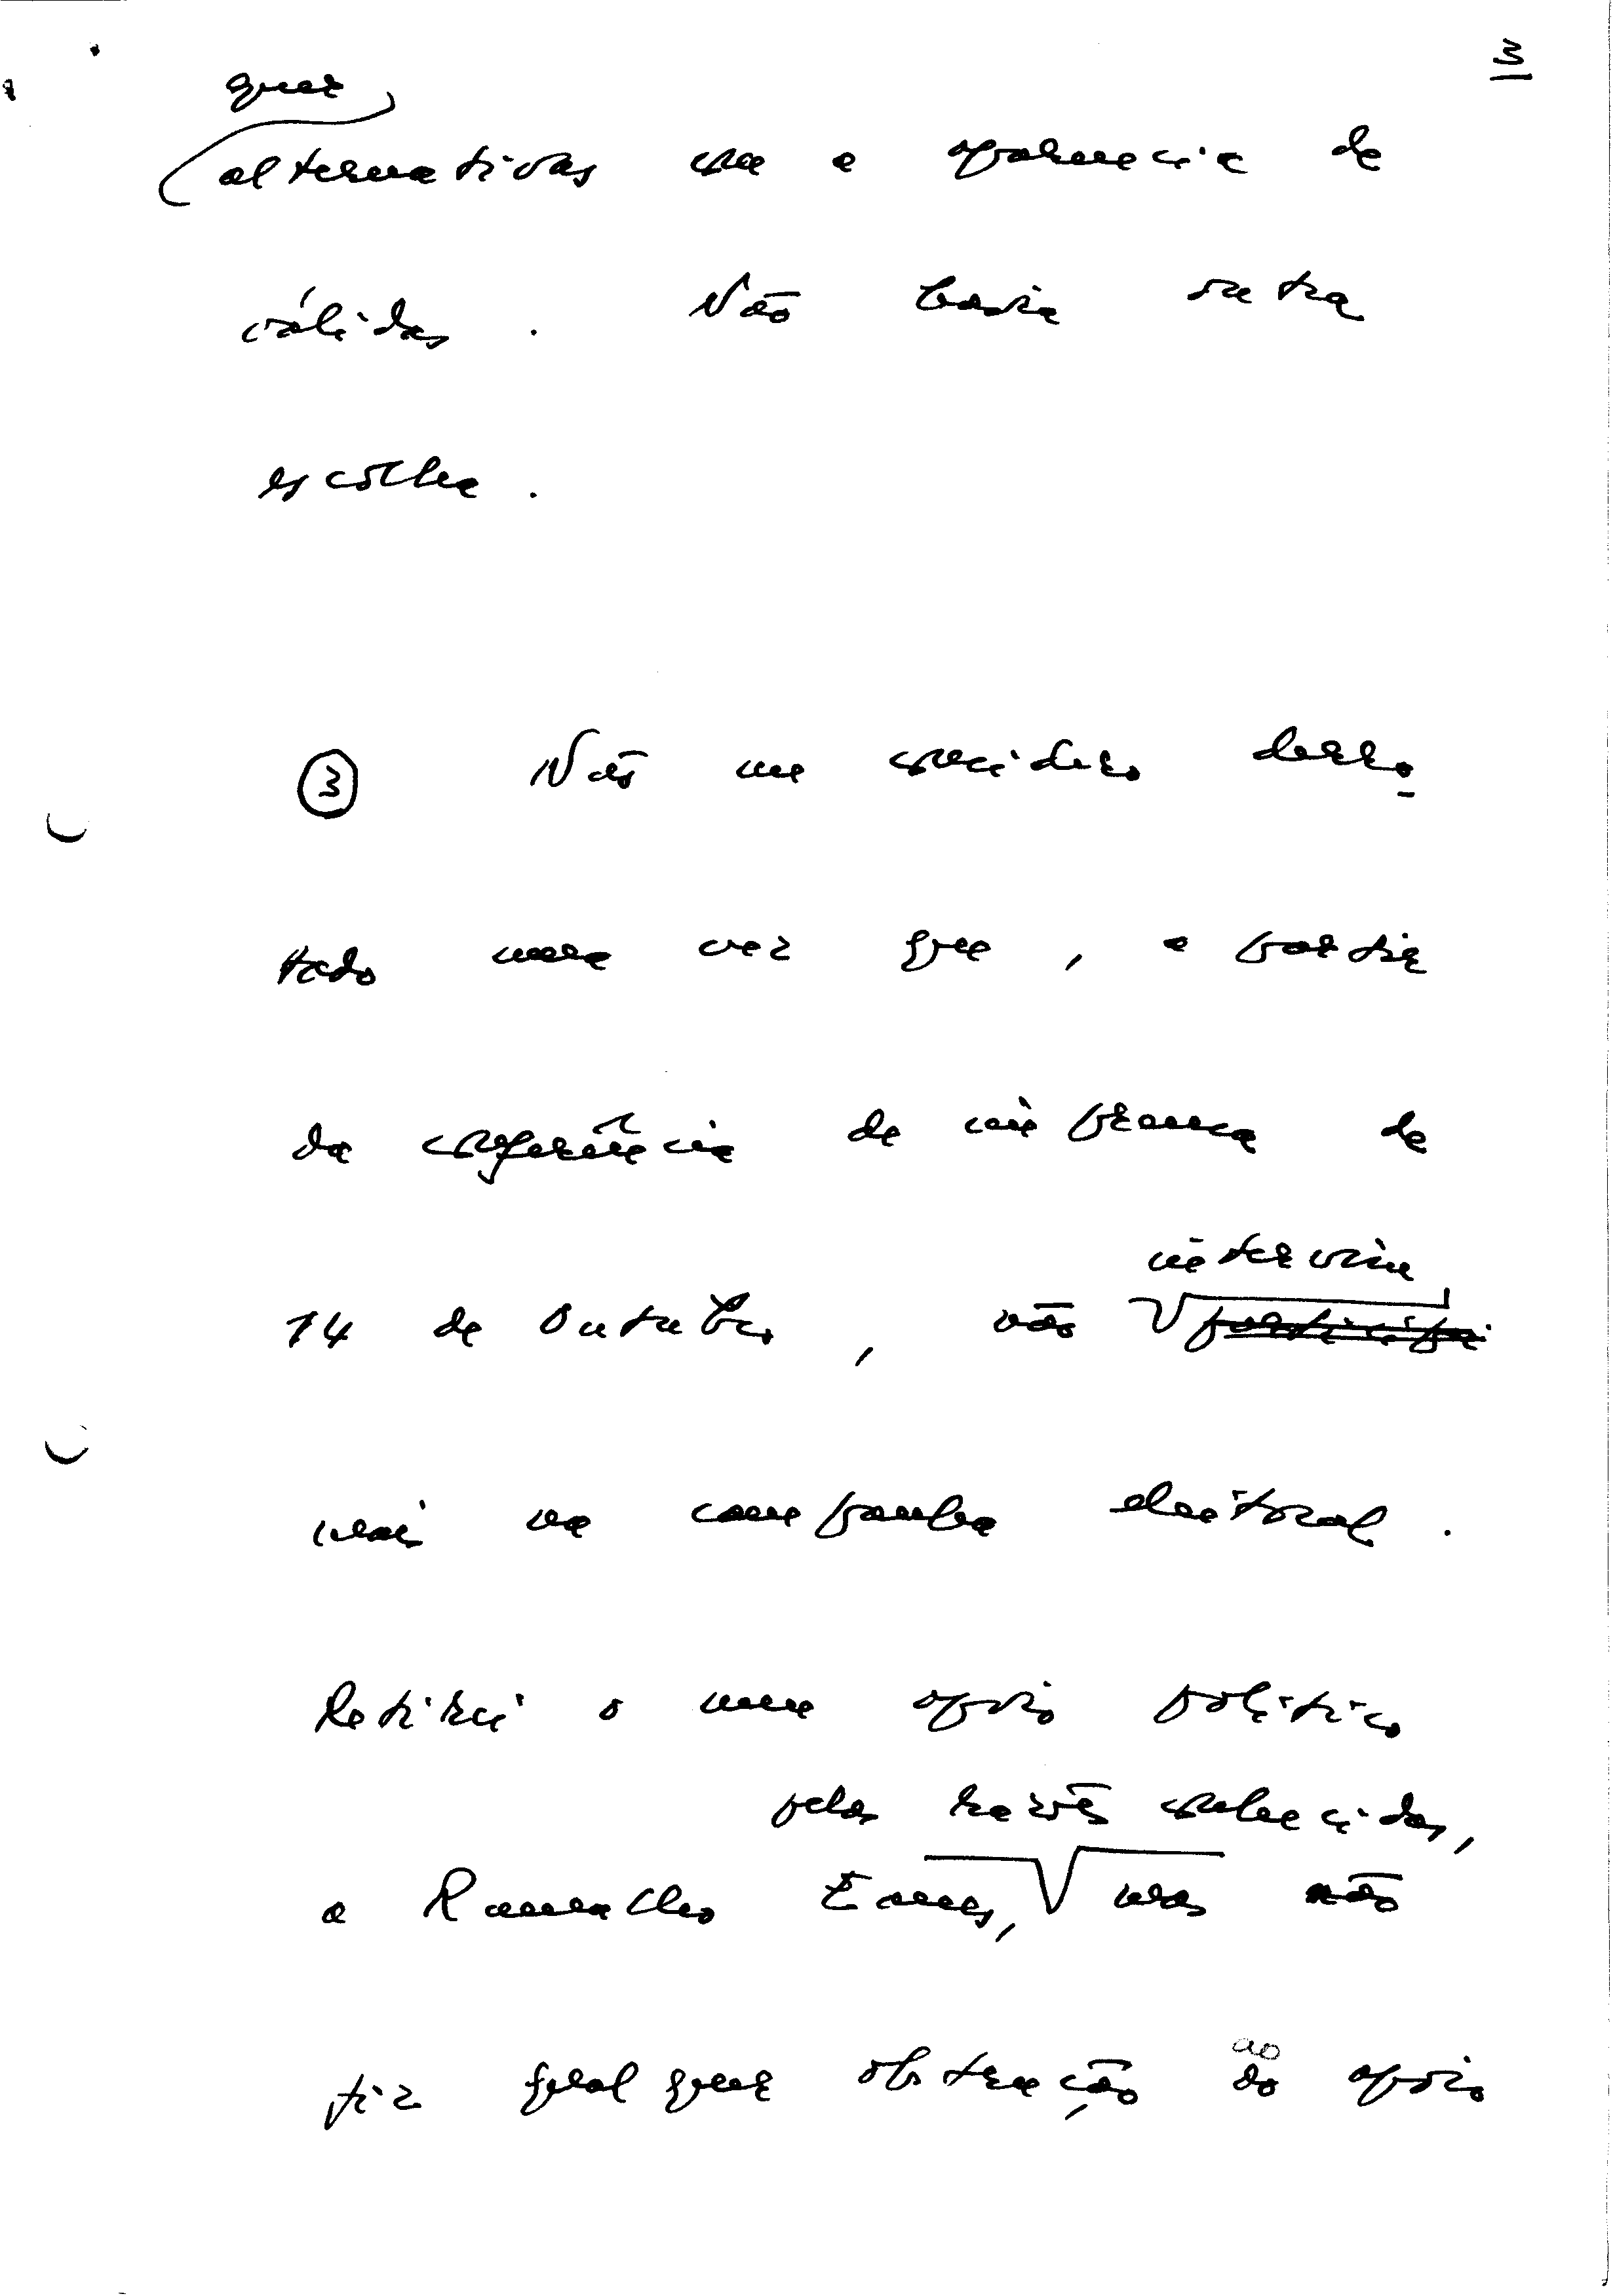 3
quer
alternativas com a aparência de
válidas. Não havia outra
escolha.
③ Não me considero derro-
tado uma vez que, a partir
da conferência de imprensa de
intervim
14 de Outubro, não participei
mais na campanha eleitoral.
Retirei o meu apoio político
pelas razões conhecidas,
a Ramalho Eanes, mas não
ao
fiz qualquer obstrução do apoio